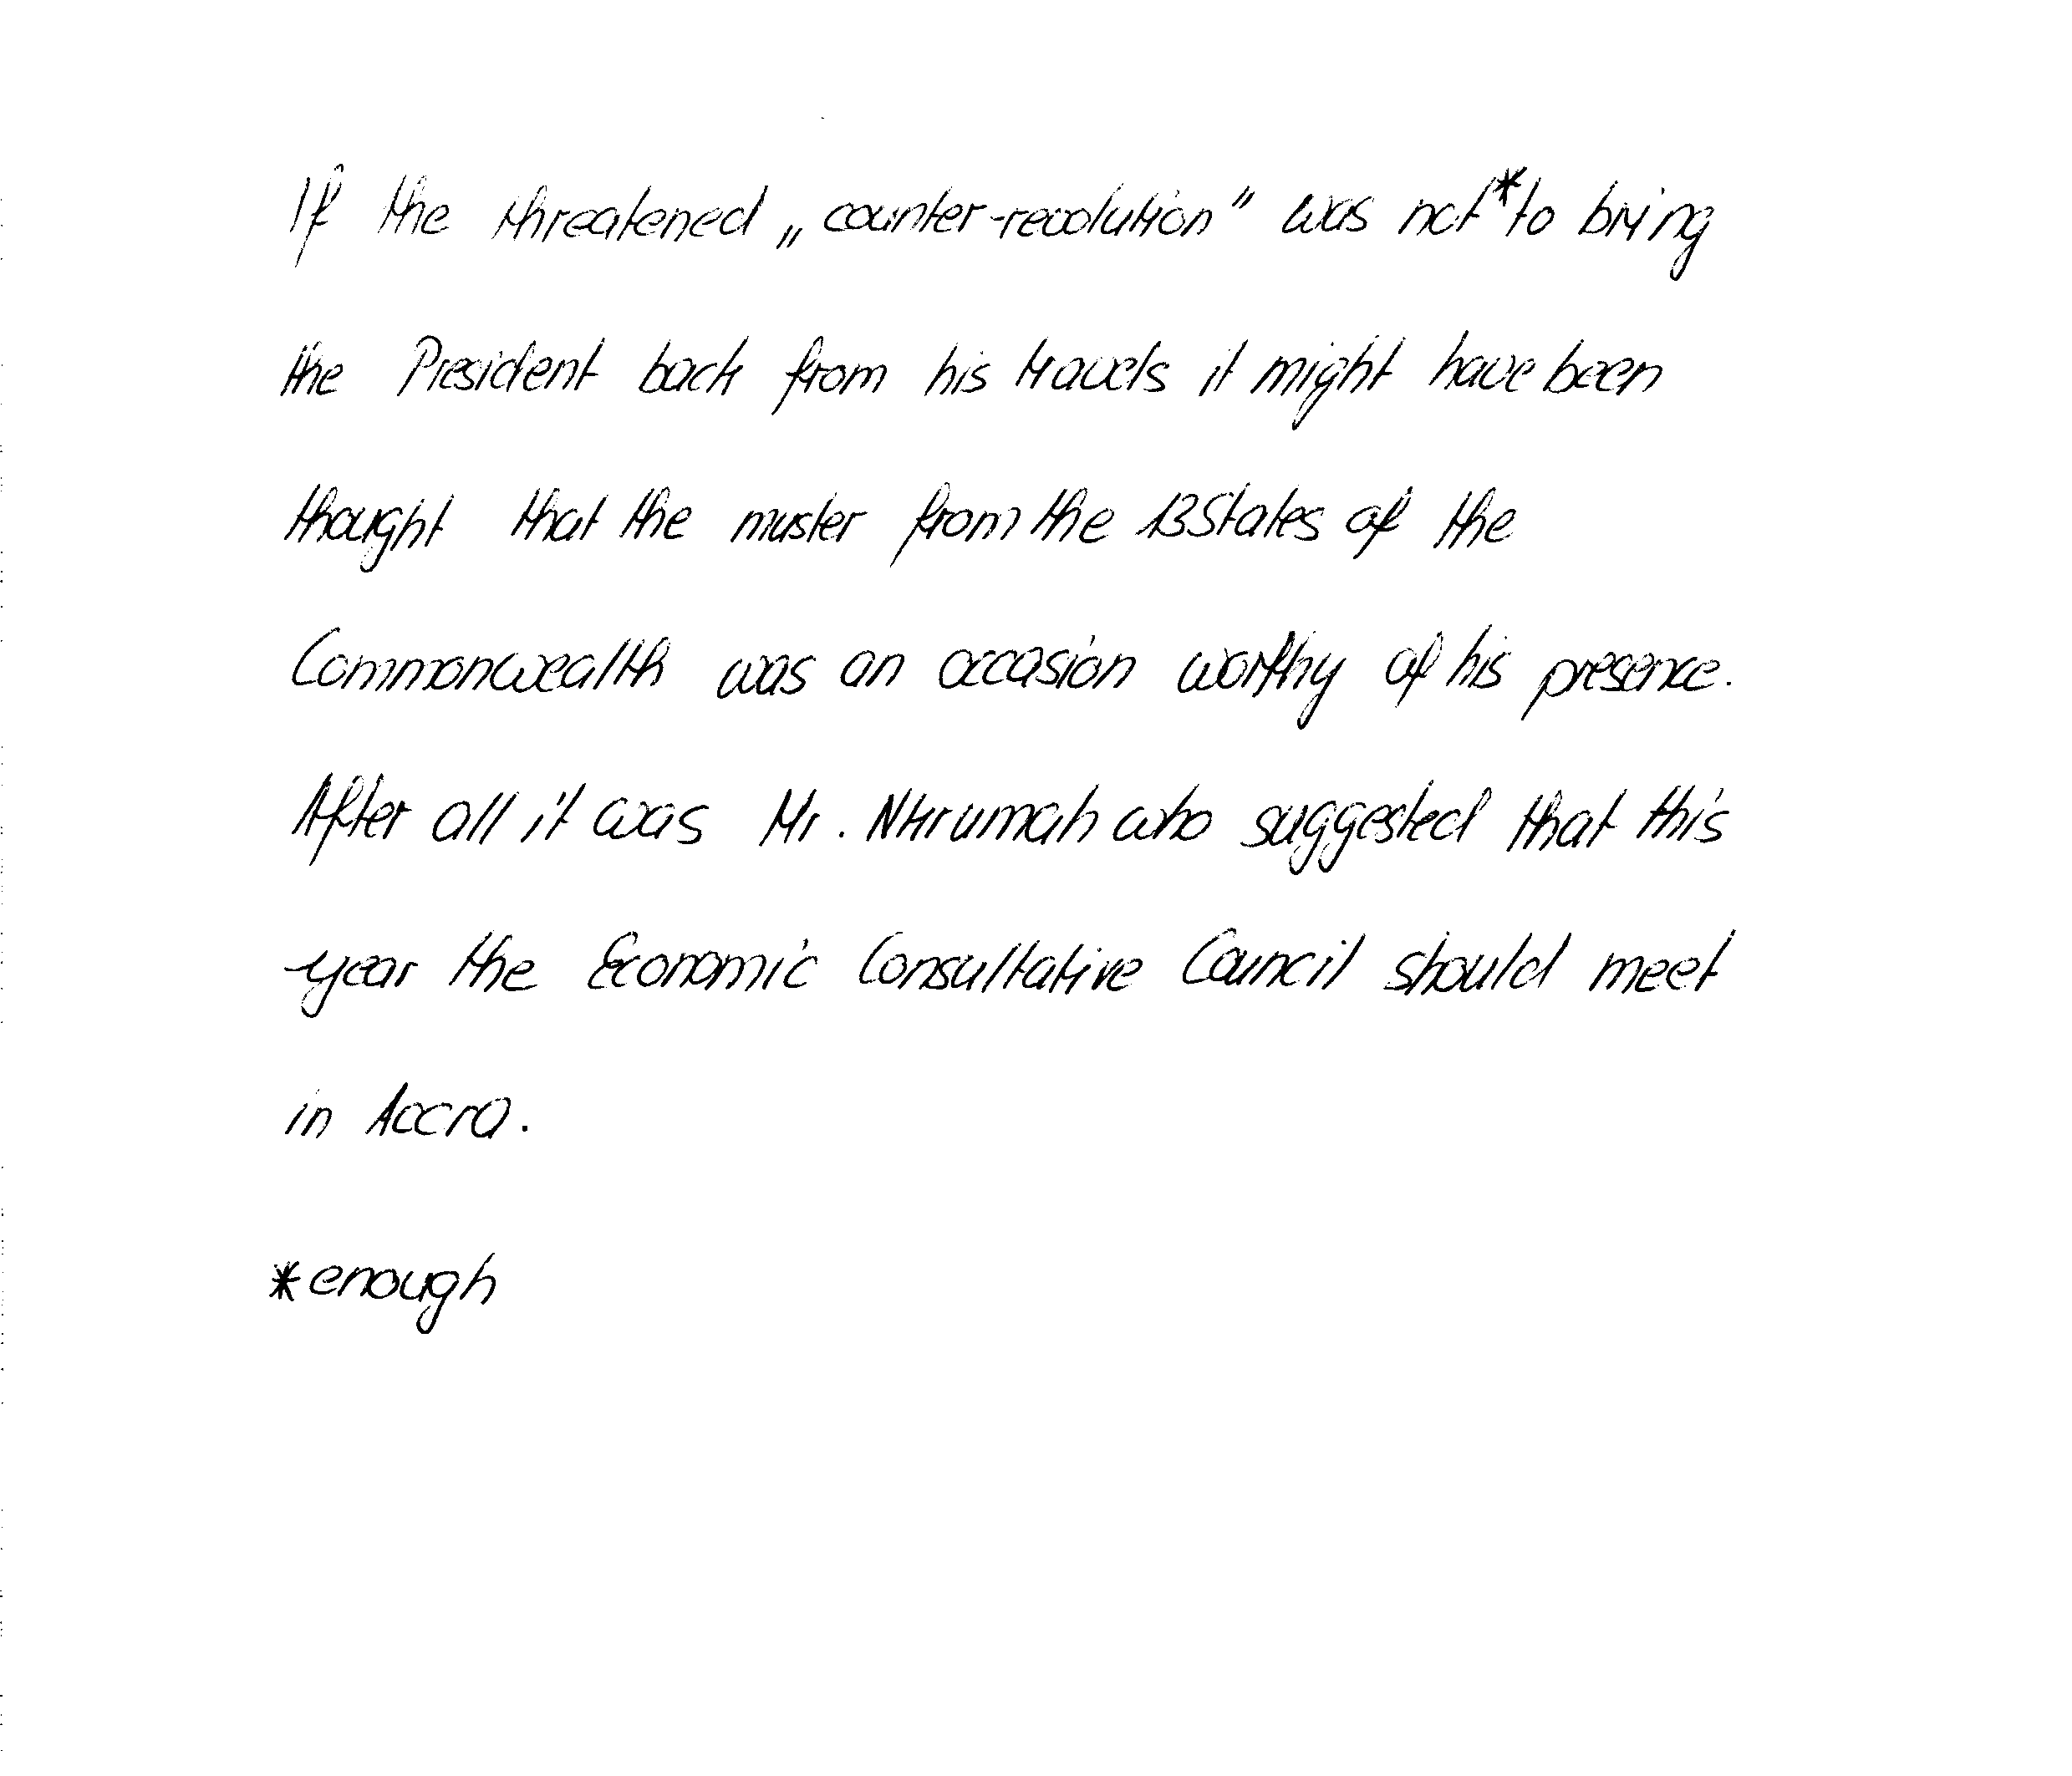 If the threatened „counter-revolution" was not*to bring
the President back from his travels it might have been
thought that the muster from the 13 States of the
Commonwealth was an occasion worthy of his presence.
After all it was Mr. Nkrumah who suggested that this
year the Economic Consultative Council should meet
in Accra.
*enough